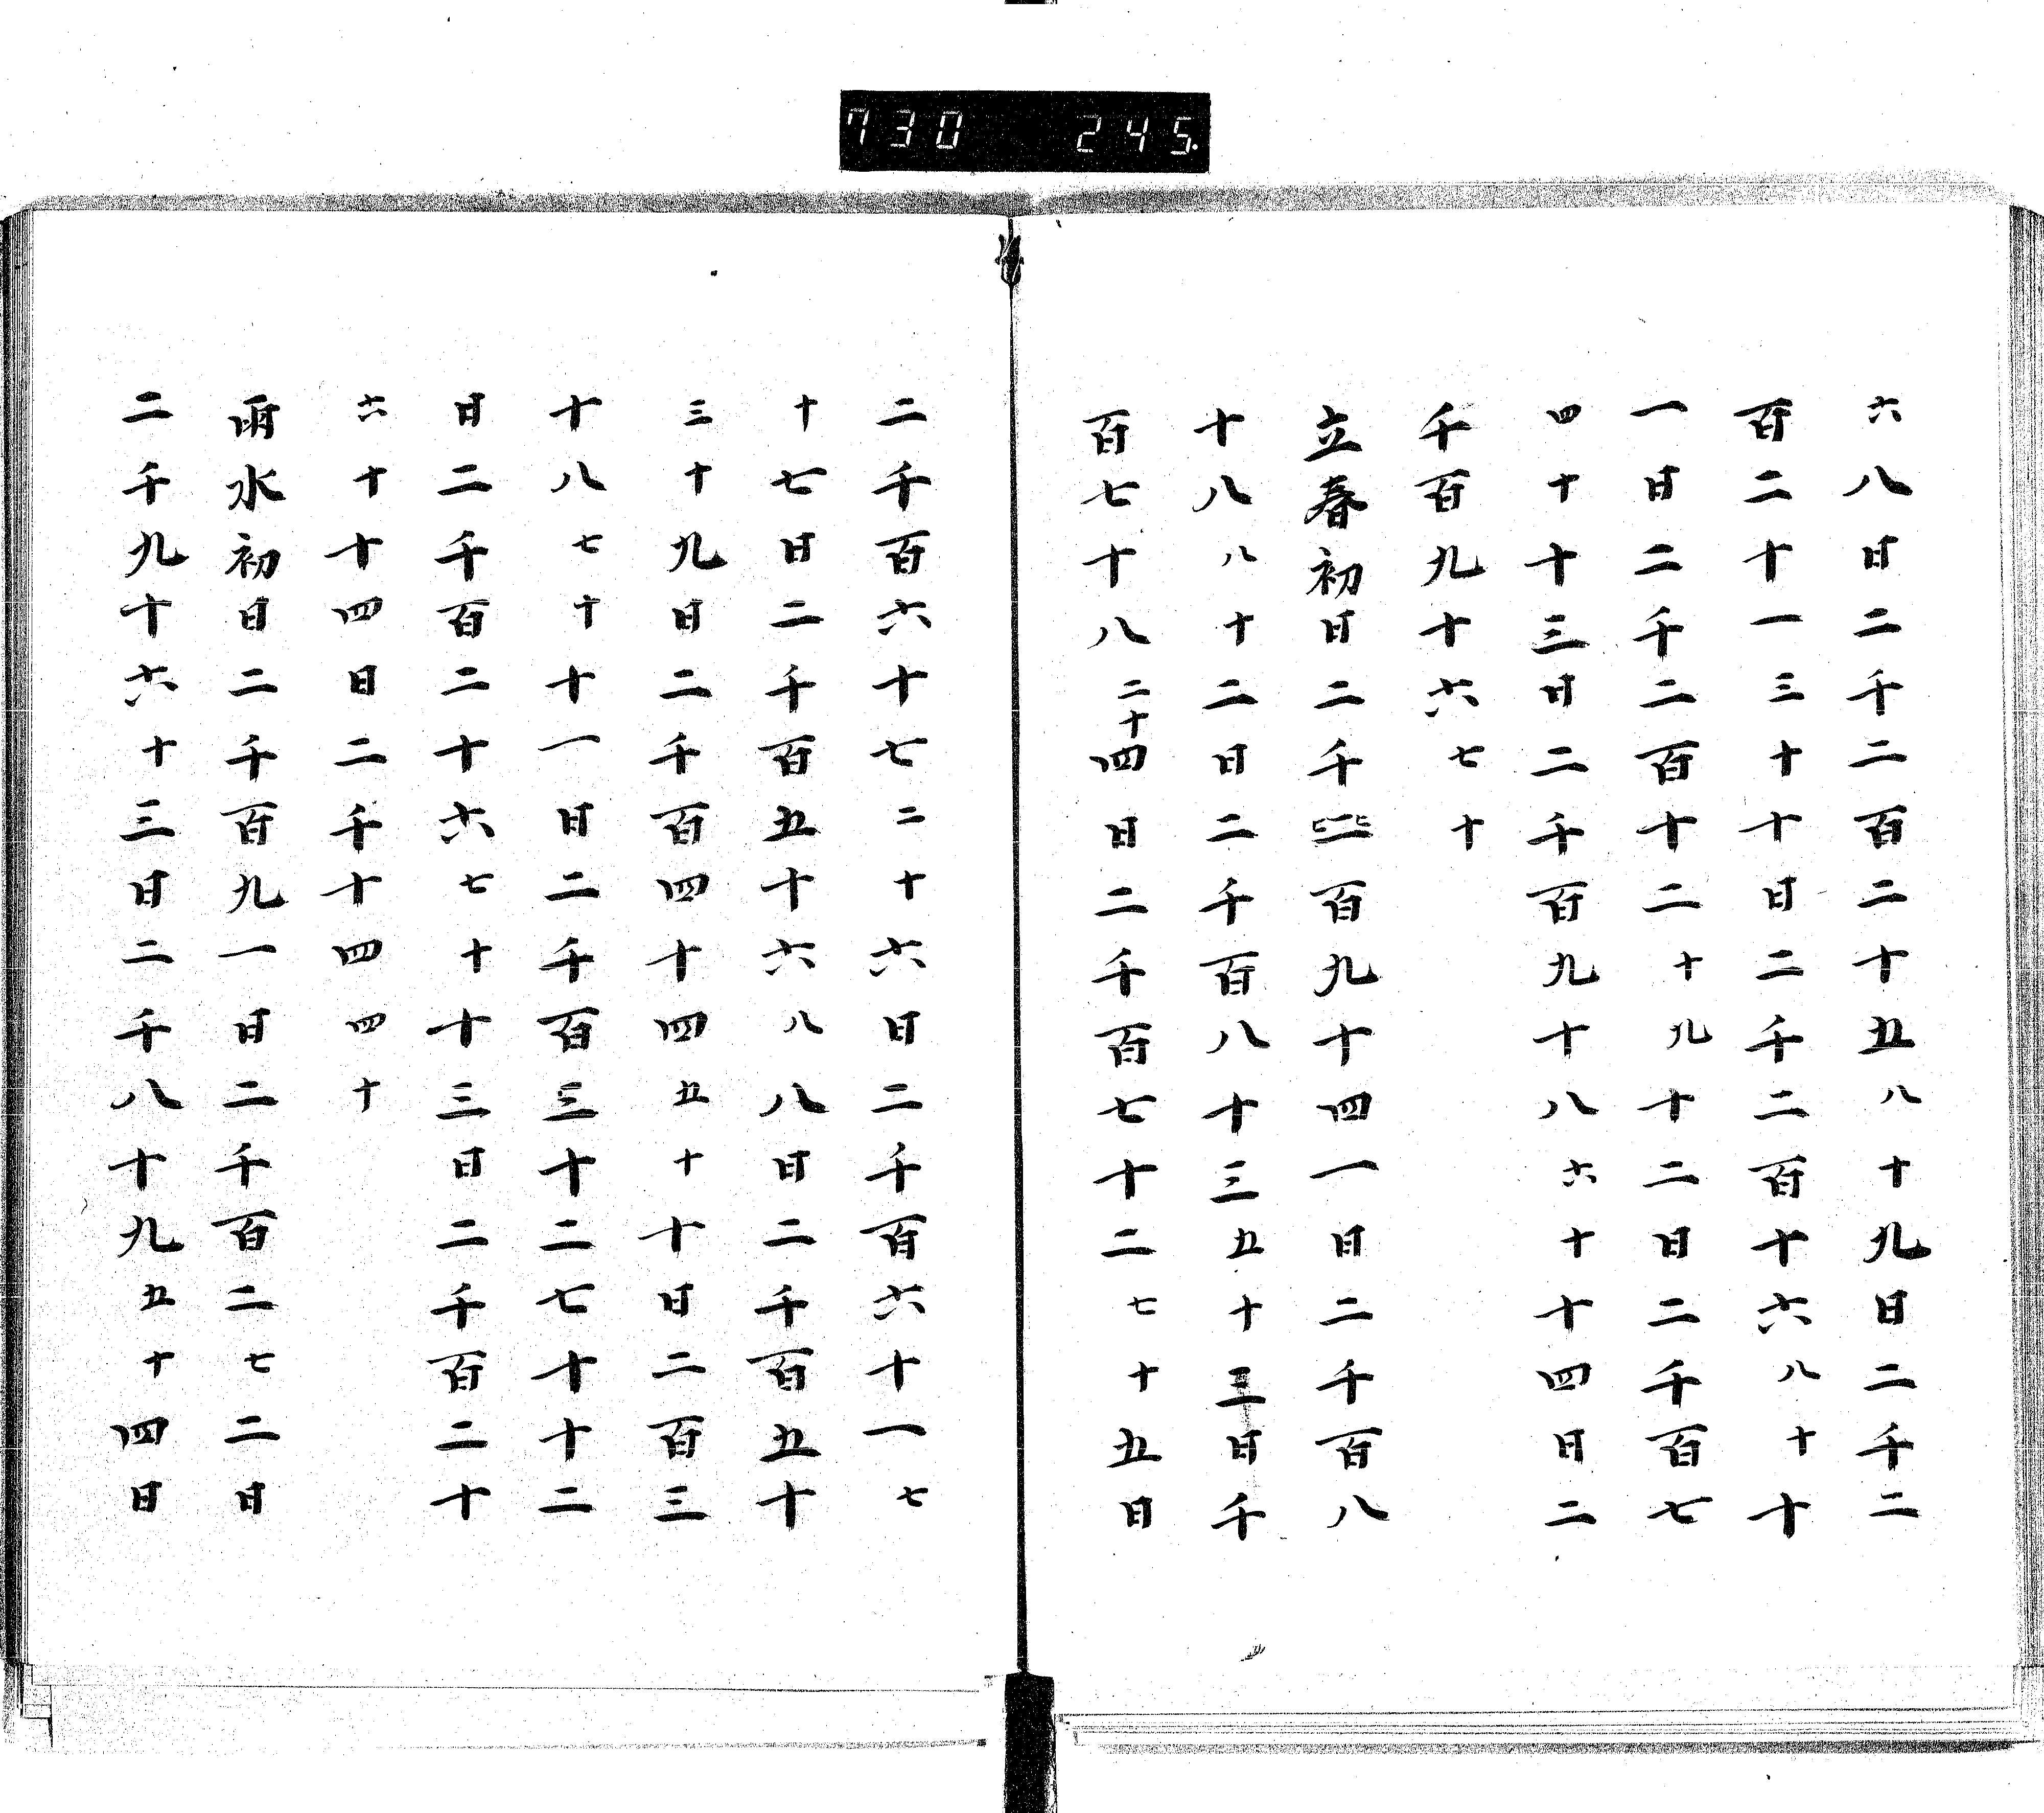 730 245.
六八日二千二百二十五八十九日二千二
百二十一三十十日二千二百十六八十十
一日二千二百十二十九十二日二千百七
四十十三日二千百九十八六十十四日二
千百九十六七十
立春初日二千二百九十四一日二千百八
十八八十二日二千百八十三五十三日千
百七十八二十四日二千百七十二七十五日
二千百六十七二十六日二千百六十一七
十七日二千百五十六八八日二千百五十
三十九日二千百四十四五十十日二百三
十八七十十一日二千百三十二七十十二
日二千百二十六七十十三日二千百二十
六十十四日二千十四四十
雨水初日二千百九一日二千百二七二日
二千九十六十三日二千八十九五十四日